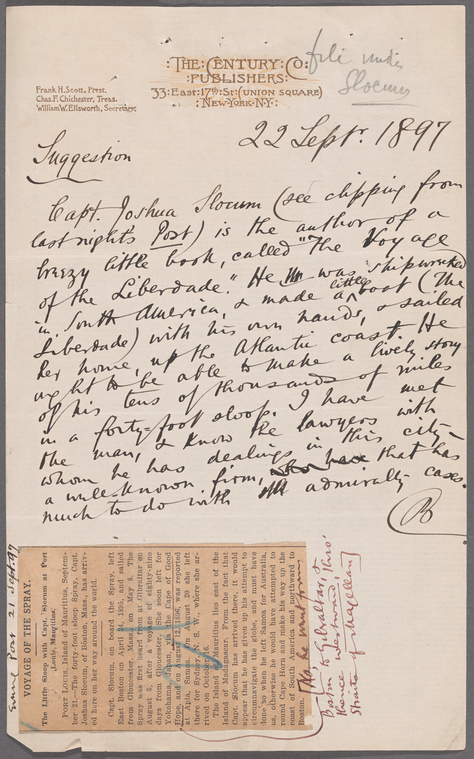 file under
Slocum
THE CENTURY CO:
PUBLISHERS:
33: EAST: 17th ST: (UNION SQUARE)
NEW-YORK-N.Y:
Frank H. Scott, Prest.
Chas. F. Chichester, Treas.
William W. Ellsworth, Secretary.
22 Septr. 1897
Suggestion
Capt. Joshua Slocum (see clipping from
last nights Post) is the author of a
breezy little book, called "The Voyage
of the Liberdade." He was shipwrecked
in South America, & made a little boat (The
Liberdade) with his own hands, & sailed
her home, up the Atlantic coast. He
ought to be able to make a lively story
of his tens of thousands of miles
in a forty-foot sloop. I have met
the man, & know the lawyers with
whom he has dealings in this city—
a well known firm, that has
much to do with admiralty cases.
B
Evening Post 21 Sept. 97
VOYAGE OF THE SPRAY.
The Little Sloop with Capt. Slocum at Port
Louis, Mauritius.
PORT LOUIS, Island of Mauritius, Septem-
ber 21.—The forty-foot sloop Spray, Capt.
Joshua Slocum, of Boston, Mass., has arriv-
ed here on her way around the world.
Capt. Slocum, on board the Spray, left
East Boston on April 24, 1895, and sailed
from Gloucester, Mass., on May 8. The
Spray was first at Gibraltar on
August 5, after a voyage of eighty-nine
days from Gloucester. She soon left for
Yokohama, Cape of Good
Hope, and on August 12, 1896, was reported
at Apia, Samoa. On August 20 she left
there for Sydney, N. S. W., where she ar-
rived on October
The Island of Mauritius lies east of the
Island of Madagascar. From the fact that
Capt. Slocum has arrived there, it would
appear that he has given up his attempt to
circumnavigate the globe, and must have
done so when he left Samoa for Australia,
as otherwise he would have attempted to
round Cape Horn and make his way up the
coast of South America and northward to
Boston.
[No, he went from
Boston to Gibraltar, &
thence westward, thro'
Straits of Magellan]